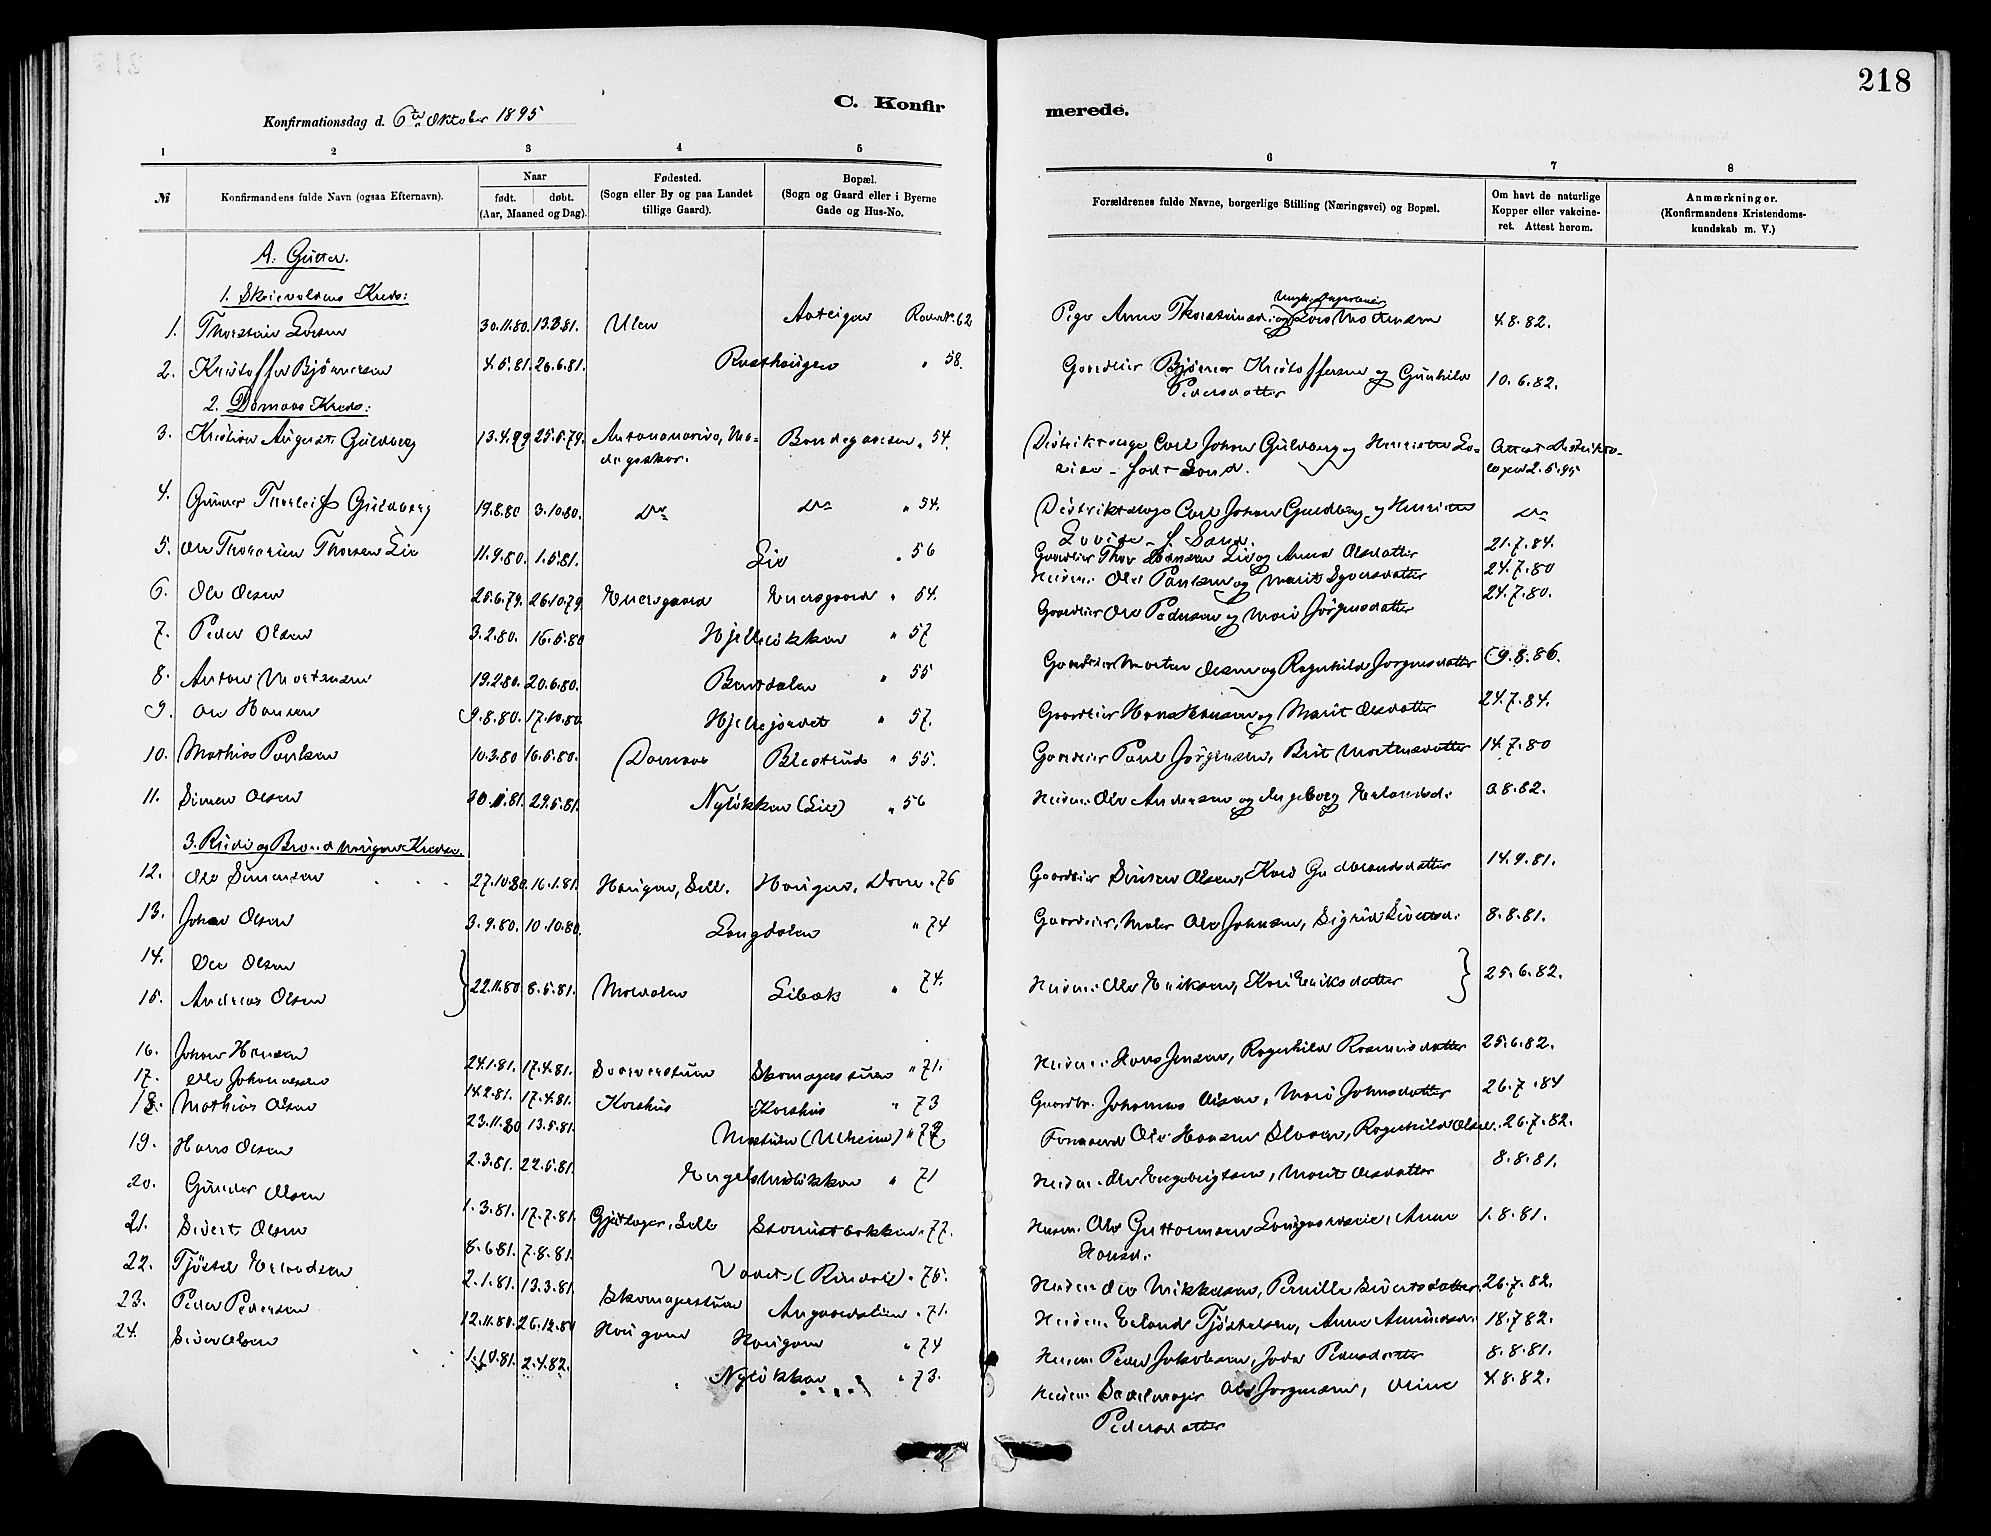 218
C. Konfirmerede.
Konfirmationsdag d. 6te Oktober 1895
1 2 3 4 5 6 7 8
№ Konfirmandens fulde Navn (ogsaa Efternavn). Naar født. døbt. (Aar, Maaned og Dag). Fødested. (Sogn eller By og paa Landet tillige Gaard). Bopæl. (Sogn og Gaard eller i Byerne Gade og Hus-No. Forældrenes fulde Navne, borgerlige Stilling (Næringsvei) og Bopæl. Om havt de naturlige Kopper eller vakcineret. Attest herom. Anmærkninger. (Konfirmandens Kristendomskundskab m. V.)
A. Gutter.
1. Skrievoldens Kreds:
1. Thorstein Larsen 30.11.80. Ulen Rodenr. 62 Pige Anne Thorsteinsd. og Lars Mortensen 4.8.82.
2. Kristoffer Bjørnersen 4.5.81. 26.6.81. Rusthaugen " 58. Gaardeier Bjørner Kristoffersen og Gunhild
Pedersdatter 10.6.82.
2. Domaas Kreds:
3. Kristian August Guldberg 13.4.79 25.5.79. Antananarivo, Ma-
dagaskar. Bondegaarden " 54. Distriktslæge Carl Johan Guldberg og Henriette Lo-
vise født Sand. Attest Distrikts-
læge 2.5.95
4. Gunnar Thorleif Guldberg 19.8.80 3.10.80. do do " 54. Distriktslæge Carl Johan Guldberg og Henriette
Lovise f. Sand. do
5. Ole Thorarin Thorsen Lie 11.9.80. 1.5.81. Lie " 56 Gaardeier Thor Hansen Lie og Anna Olsdatter 21.7.84.
6. Ole Olsen 25.6.79. 26.10.79. Einersgaard Einersgaard " 54. Husm. Ole Paulsen og Marit Syversdatter 24.7.80
7. Peder Olsen 3.2.80. 16.5.80 Hjelleløkken " 57 Gaardeier Ole Pedersen og Mari Jørgensdatter 24.7.80.
8. Anton Mortensen 19.2.80. 20.6.80. Bentdalen " 55 Gaardeier Morten Olsen og Ragnhild Jørgensdatter 9.8.86.
9. Ole Hansen 9.8.80. 17.10.80. Hjellejordet " 57. Gaardeier Hans Hansen og Marit Olsdatter 24.7.84.
10. Mathias Paulsen 10.3.80 16.5.80. Domaas Blestrud " 55. Gaardeier Paul Jørgensen, Brit Mortensdatter 14.7.80
11. Simen Olsen 29.5.81. Nyløkken (Lie) " 56 Husm. Ole Andersen og Ingeborg Erlandsd. 8.82.
3. Rudi og Brandhaugens Kredse.
12. Ole Simensen 27.10.80. 16.1.81. Haugen, Sell. Haugen, Dovre " 76 Gaardeier Simen Olsen, Kari Gudbrandsdatter 14.9.81.
13. Johan Olsen 3.9.80. 10.10.80. Langdalen " 74 Gaardeier, Maler Ole Johnsen, Sigrid Sivertsd. 8.8.81.
14. Ole Olsen
15. Andreas Olsen } 22.11.80 8.5.81. Moldalen Libæk " 74. Husm. Ole Eriksen, Kari Eriksdatter } 25.6.82.
16. Johan Hansen 24.1.81. 17.4.81. Skomagerstuen " 71. Husm. Hans Jensen, Ragnhild Rasmusdatter 25.6.82.
17. Ole Johannesen 14.2.81. 17.4.81. Korshus Korshus " 73 Gaardbr. Johannes Olsen, Mari Johnsdatter 26.7.84
18. Mathias Olsen 23.11.80 13.5.81. (Ulheim) " Ole Hansen, Ragnhild Olsd. 26.7.82.
19. Hans Olsen 2.3.81. 22.5.81. Engelshusløkken " 71 Husm. Ole Engebrigtsen, Marit Olsdatter 8.8.81.
20. Gunder Olsen 1.3.81. 17.7.81. Sell " 77. Husm. Ole Guttormsen, Anne
Hansd. 1.8.81.
21. Sivert Olsen 8.6.81. 7.8.81. " 75. Husm. Ole Mikkelsen, Pernille Sivertsdatter 26.7.82.
22. Tjøstel Erlandsen 2.1.81. 13.3.81. Skomagerstuen Angaardstuen " 71. Husm. Erland Tjøstelsen, Anne Amundsd. 18.7.82.
23. Peder Pedersen 12.11.80. 26.12.80 Haugen Haugen " 74 Husm. Peder Jakobsen, Pedersdatter 8.8.81.
24. Sivert Olsen 1.10.81. 2.4.82. Nyløkken " 73. Husm. Sadelmager Ole Jørgensen, Oline
Pedersdatter 4.8.82.